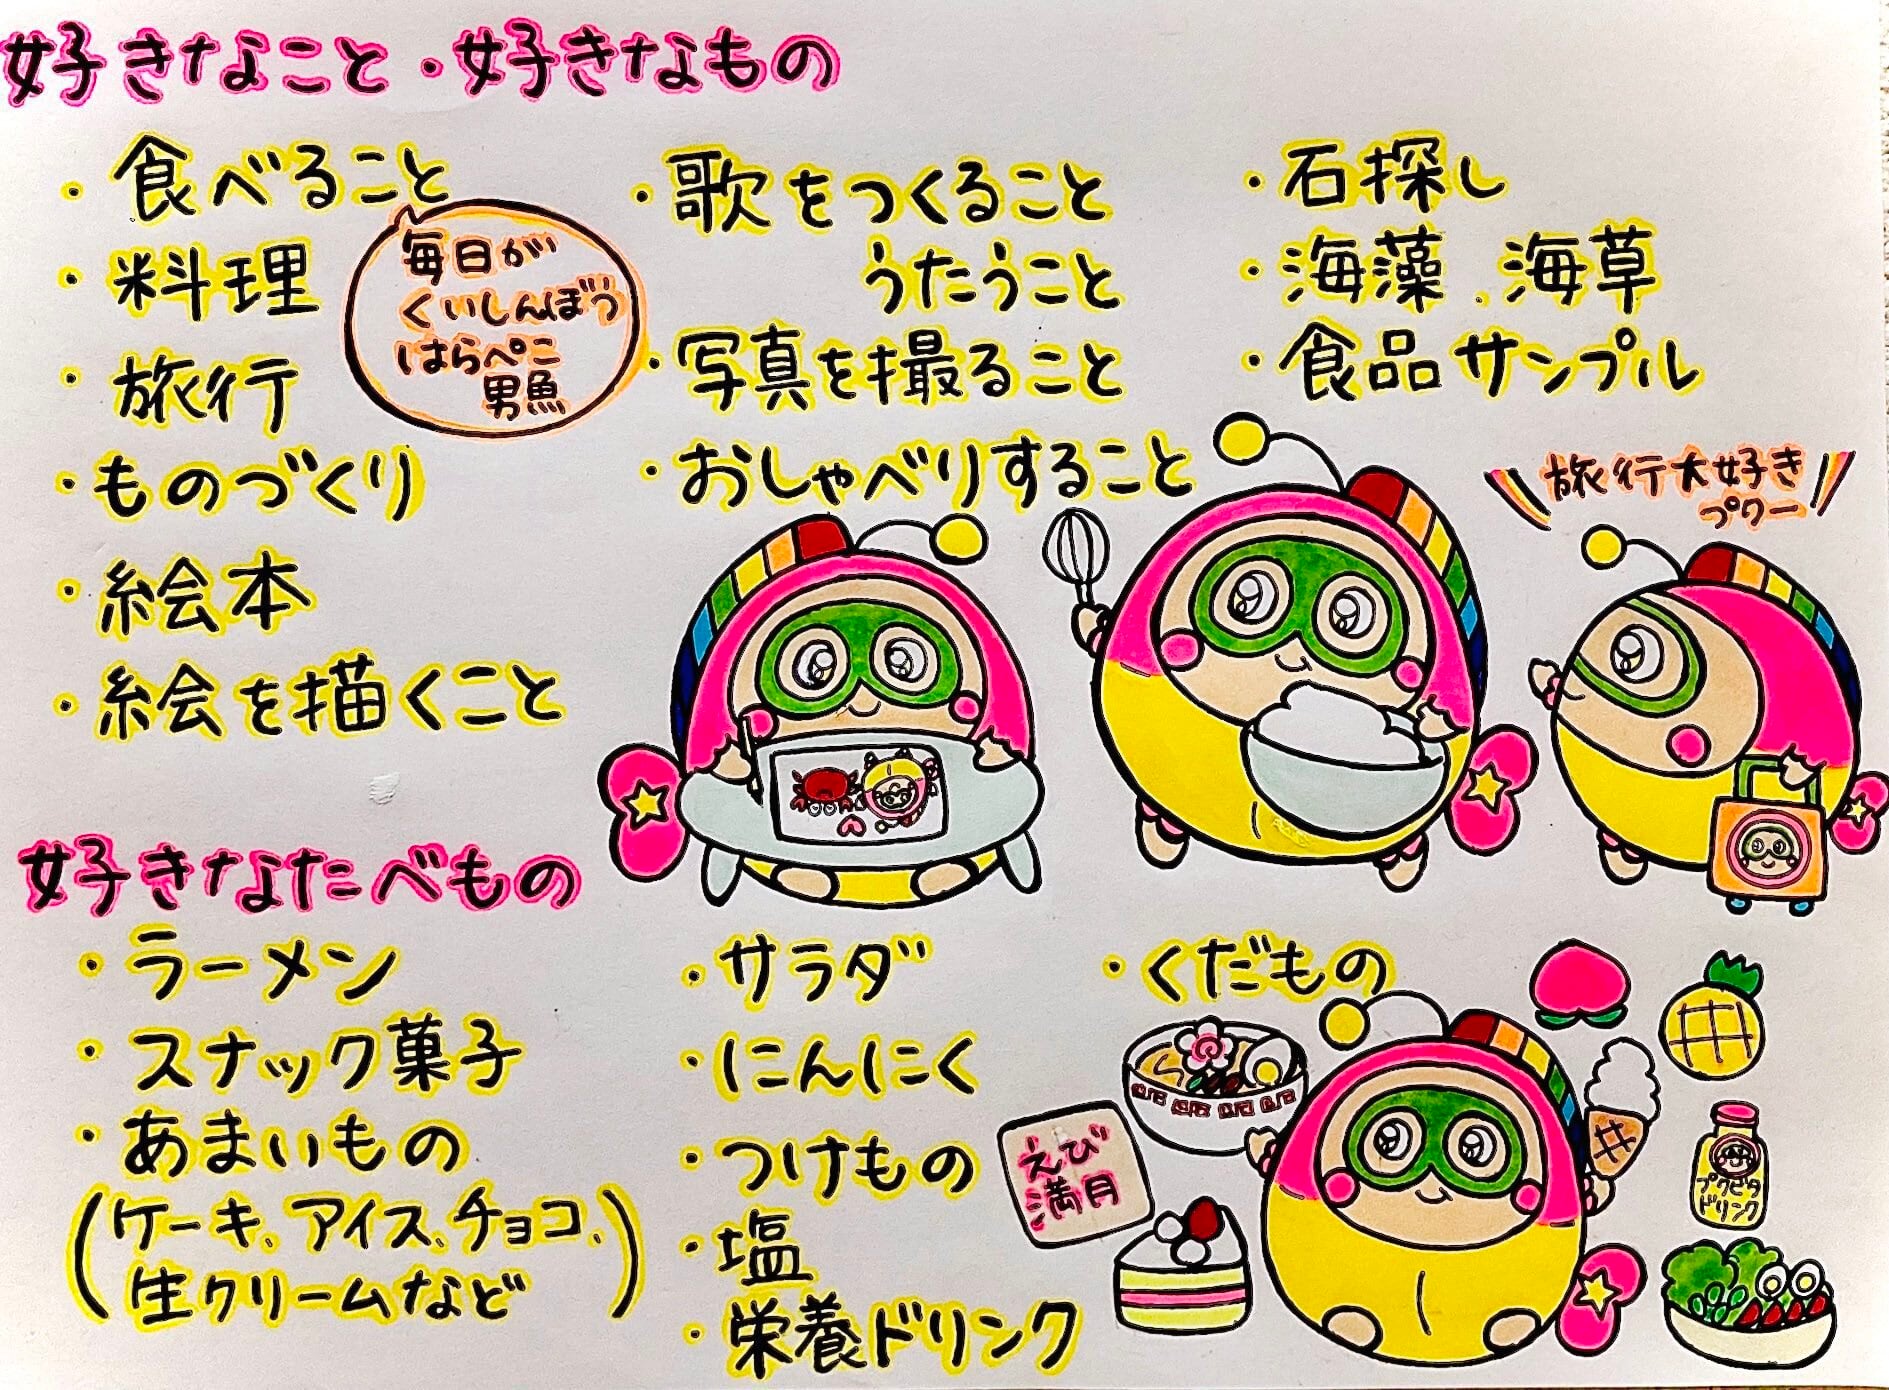 好きなこと・好きなもの
・食べること
毎日が
くいしんぼう
はらぺこ
男魚
・料理
・旅行
・ものづくり
・絵本
・絵を描くこと
・歌をつくること
うたうこと
・写真を撮ること
・おしゃべりすること
・石探し
・海藻、海草
・食品サンプル
旅行大好き
プクー
好きなたべもの
・ラーメン
・スナック菓子
・あまいもの
(ケーキ、アイス、チョコ、
生クリームなど)
・サラダ
・にんにく
・つけもの
・塩
・栄養ドリンク
・くだもの
えび
満月
プクビタ
ドリンク